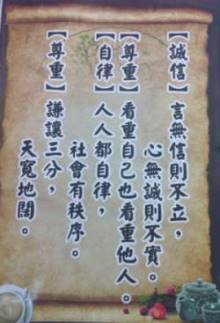 【誠信】言無信則不立，
心無誠則不實。
【尊重】看重自己也看重他人。
【自律】人人都自律，
社會有秩序。
【尊重】謙讓三分，
天寬地闊。